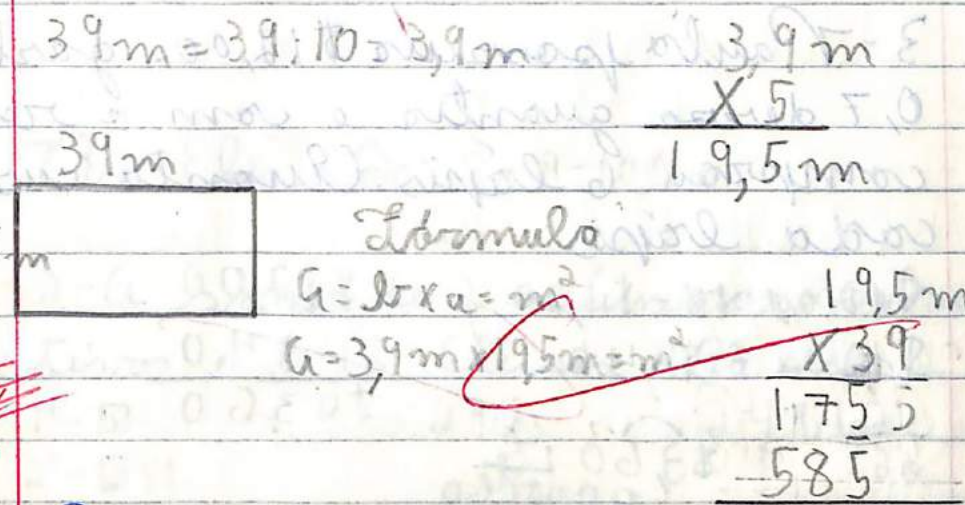 39m = 39:10 = 3,9m
3,9m
X5
19,5m
39m
m
Fórmula
G = b x a = m²
G = 3,9m x 19,5m = m²
19,5m
X39
1755
585